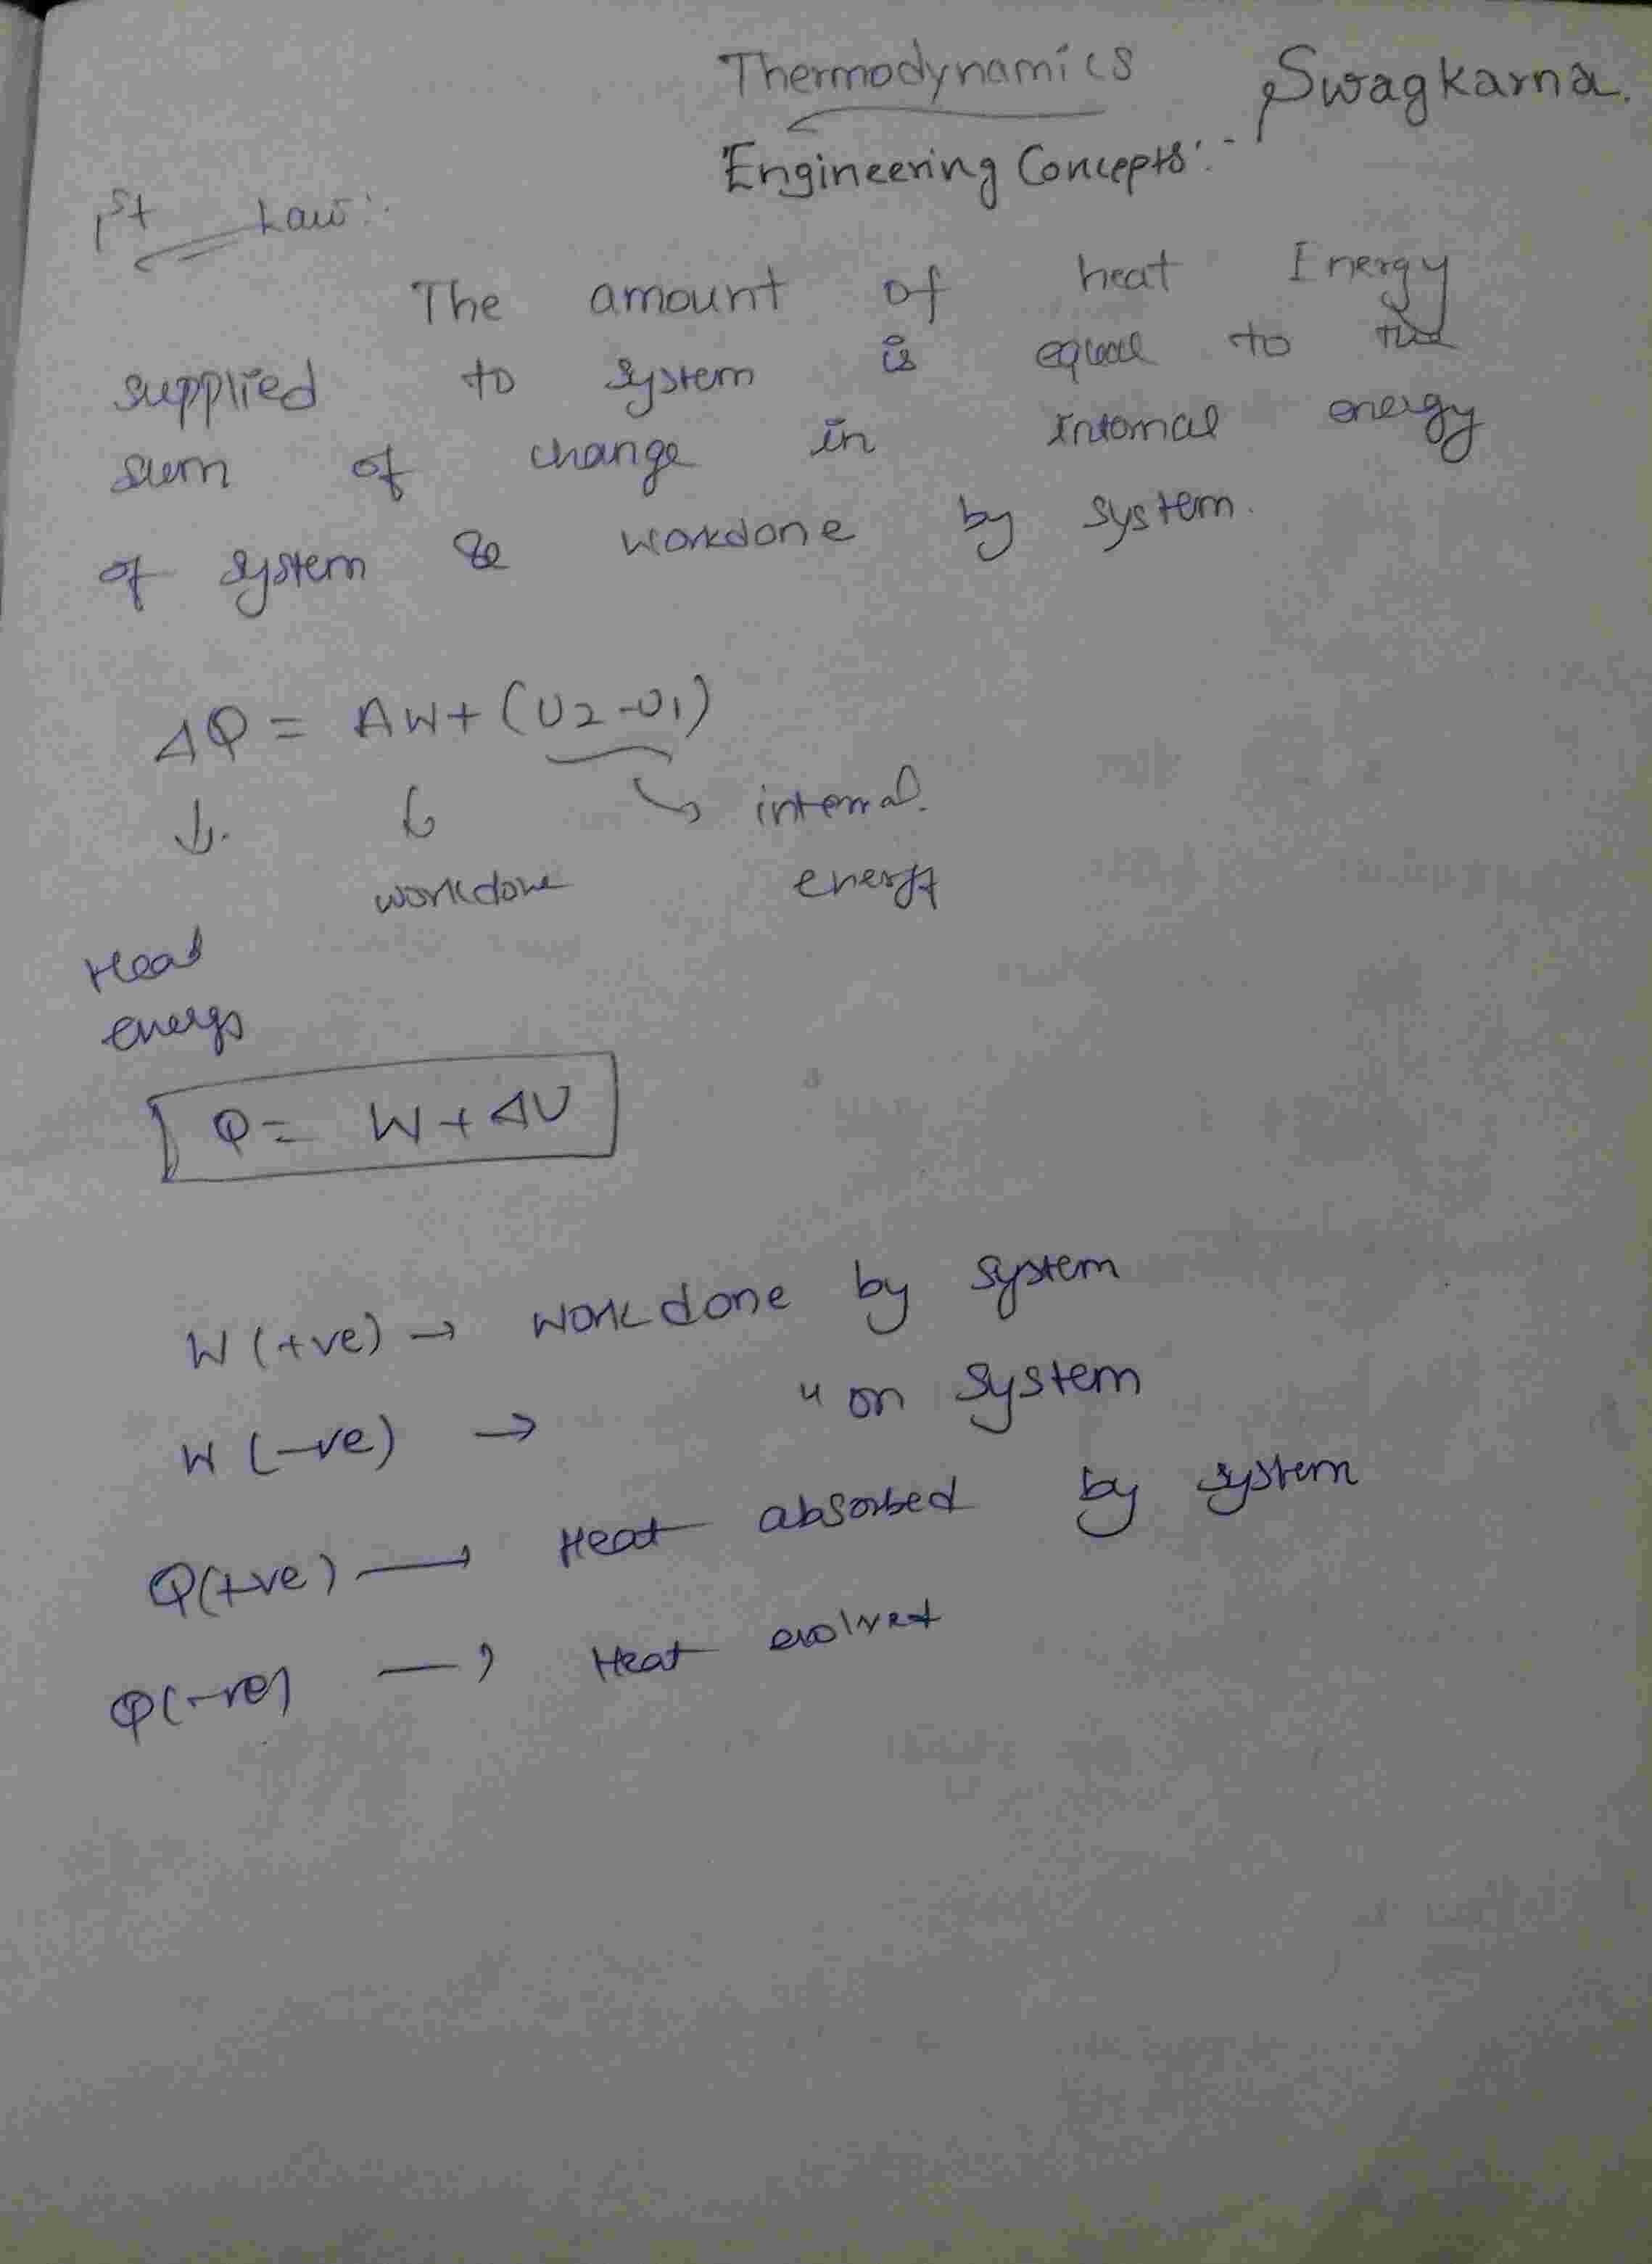 Thermodynamics
Swagkarna.
Engineering Concepts:-
1st Law:-
The amount of heat Energy
supplied to system is equal to the
sum of change in internal energy
of system & workdone by system.
ΔQ = ΔW+(U2-U1)
↓. ↓ ↘ internal
workdone energy
Heat
energy
Q = W+ΔU
W (+ve) → work done by system
W (-ve) → " on system
Q(+ve) → Heat absorbed by system
Q(-ve) → Heat evolved